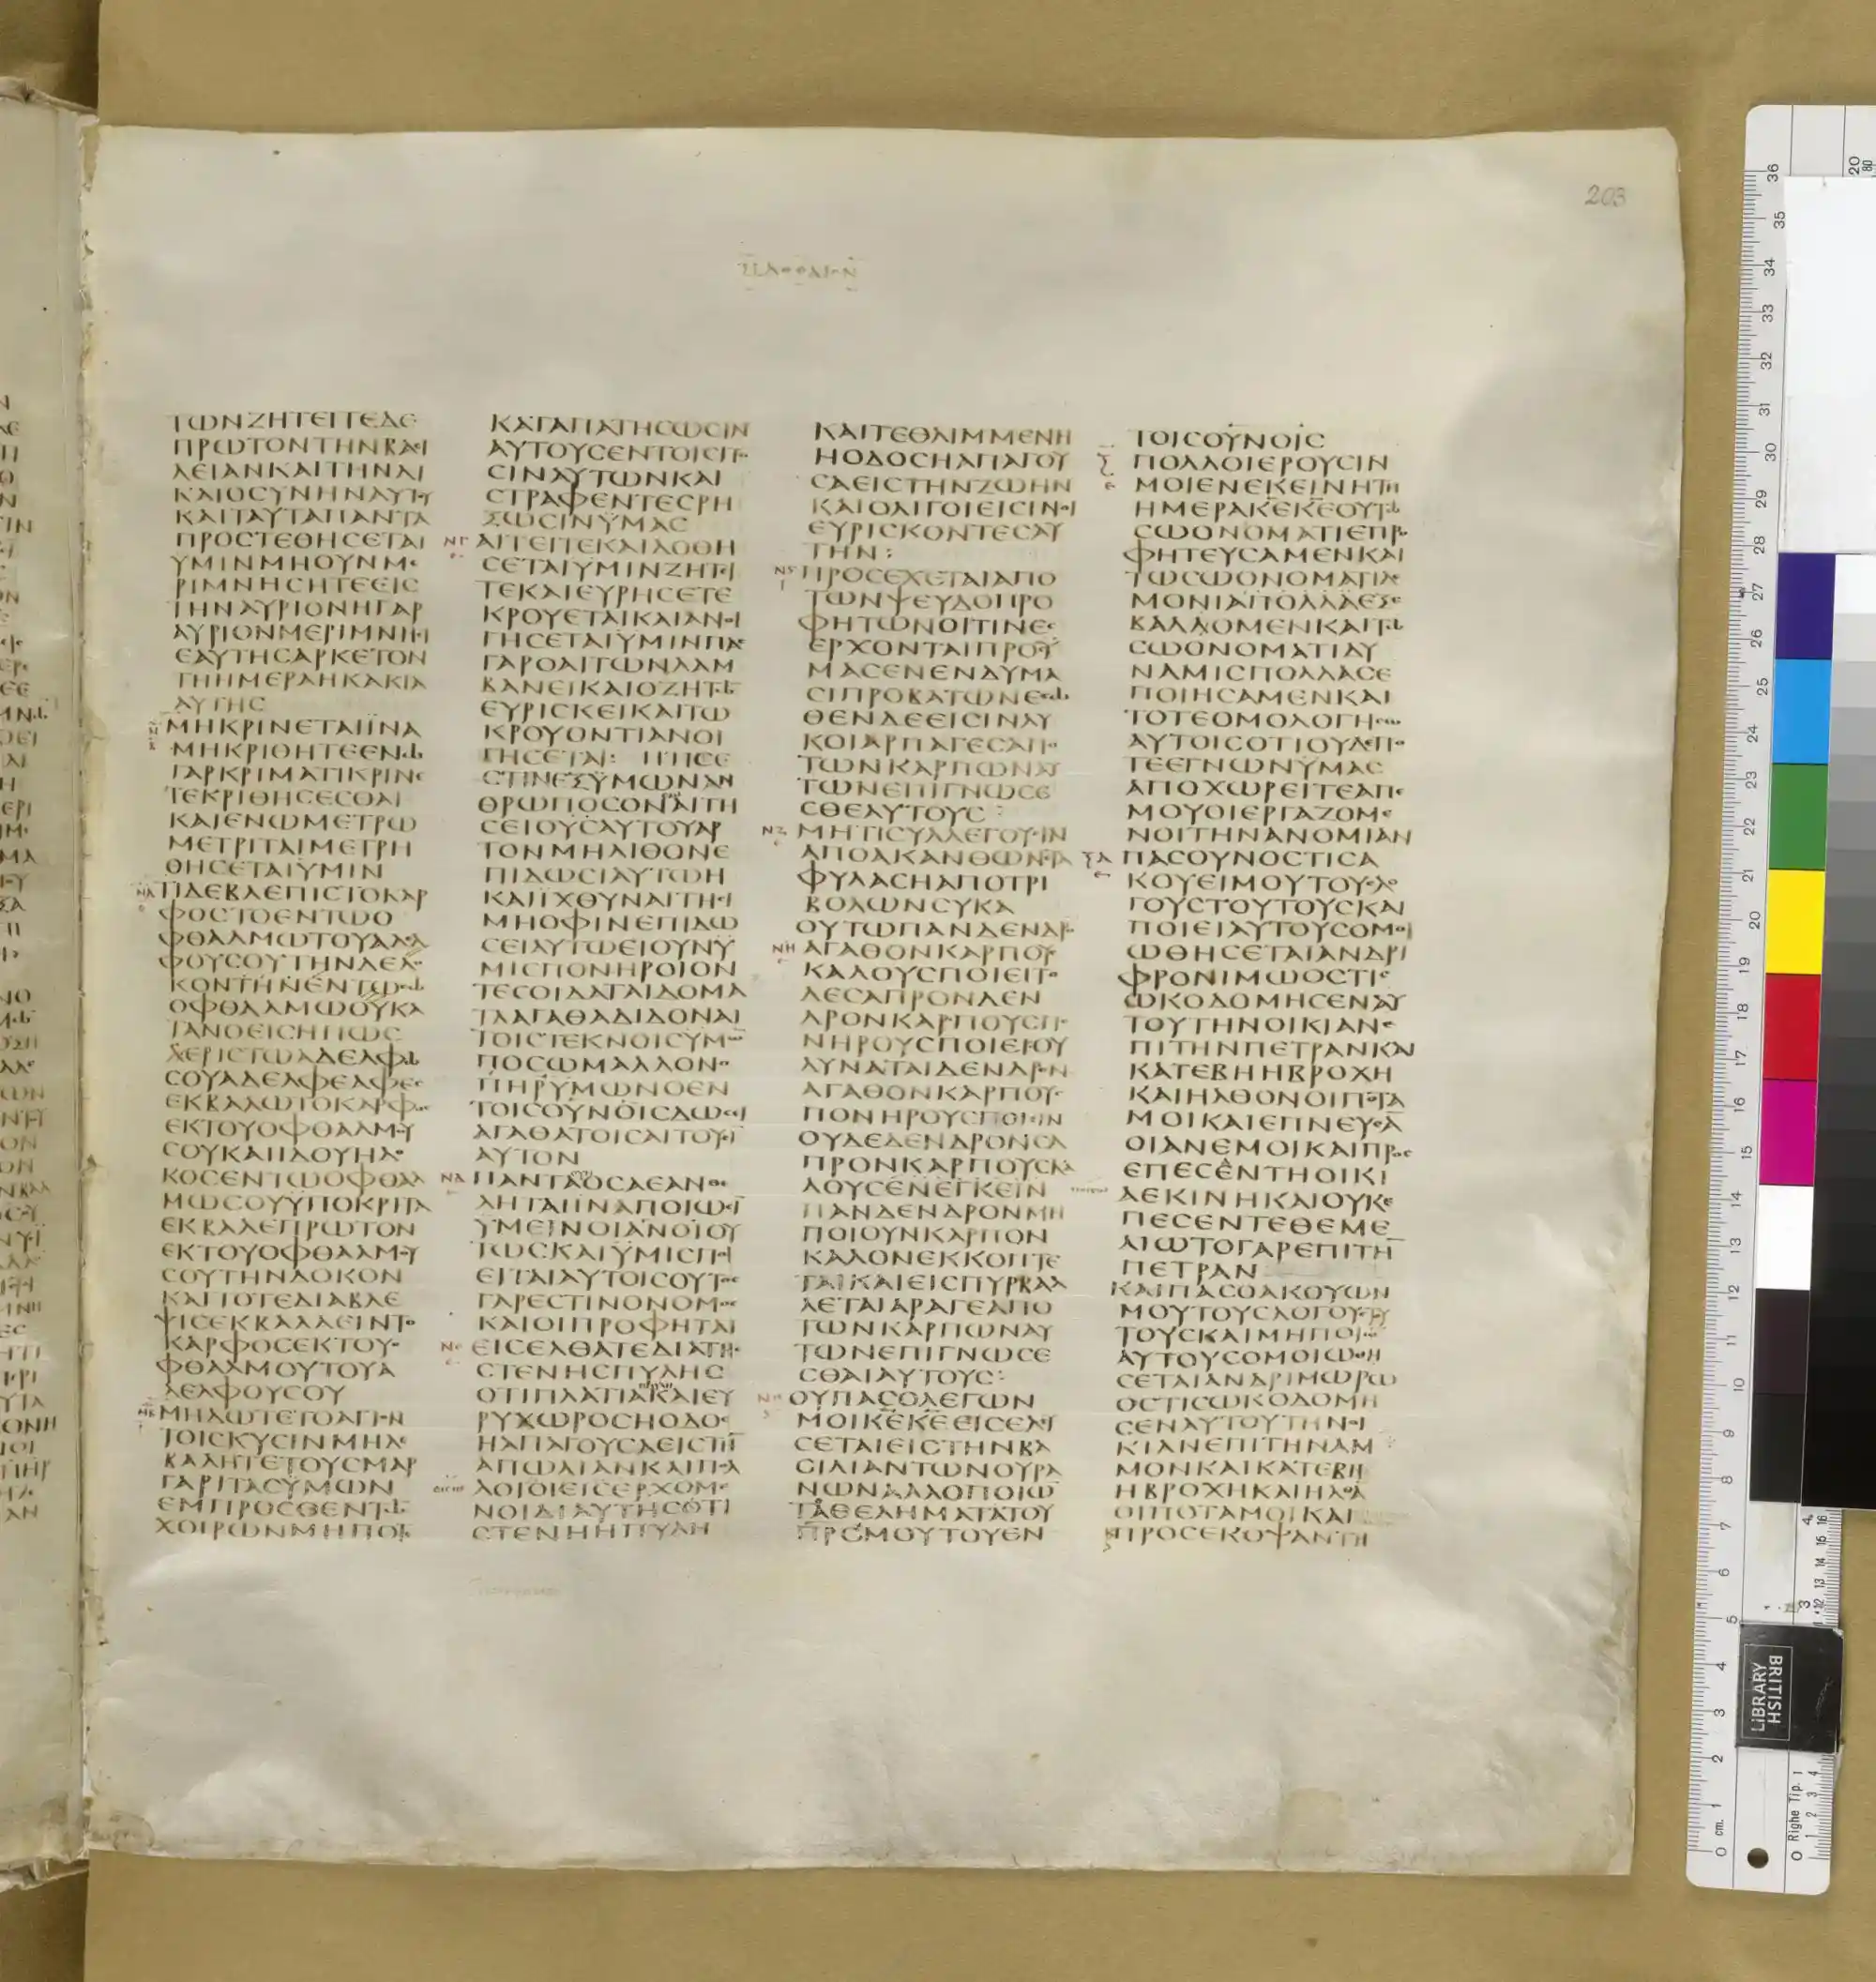 203
ΤΩΝΖΗΤΕΙΤΕΔΕ
ΠΡΩΤΟΝΤΗΝΒΑϹΙ
ΛΕΙΑΝΚΑΙΤΗΝΔΙ
ΚΑΙΟϹΥΝΗΝΑΥΤΟΥ
ΚΑΙΤΑΥΤΑΠΑΝΤΑ
ΠΡΟϹΤΕΘΗϹΕΤΑΙ
ΥΜΙΝΜΗΟΥΝΜΕ
ΡΙΜΝΗϹΗΤΕΕΙϹ
ΤΗΝΑΥΡΙΟΝΗΓΑΡ
ΑΥΡΙΟΝΜΕΡΙΜΝΗϹΙ
ΕΑΥΤΗϹΑΡΚΕΤΟΝ
ΤΗΗΜΕΡΑΗΚΑΚΙΑ
ΑΥΤΗϹ
ΜΗΚΡΙΝΕΤΑΙΪΝΑ
ΜΗΚΡΙΘΗΤΕΕΝΩ
ΓΑΡΚΡΙΜΑΤΙΚΡΙΝΕ
ΤΕΚΡΙΘΗϹΕϹΘΑΙ
ΚΑΙΕΝΩΜΕΤΡΩ
ΜΕΤΡΙΤΑΙΜΕΤΡΗ
ΘΗϹΕΤΑΙΫΜΙΝ
ΤΙΔΕΒΛΕΠΙϹΤΟΚΑΡ
ΦΟϹΤΟΕΝΤΩΟ
ΦΘΑΛΜΩΤΟΥΑΔΕΛ
ΦΟΥϹΟΥΤΗΝΔΕΔΟ
ΚΟΝΤΗΝΕΝΤΩϹΩ
ΟΦΘΑΛΜΩΟΥΚΑ
ΤΑΝΟΕΙϹΗΠΩϹ
ΛΕΓΙϹΤΩΑΔΕΛΦΩ
ϹΟΥΑΔΕΛΦΕΑΦΕϹ
ΕΚΒΑΛΩΤΟΚΑΡΦΟϹ
ΕΚΤΟΥΟΦΘΑΛΜΟΥ
ϹΟΥΚΑΙΙΔΟΥΗΔΟ
ΚΟϹΕΝΤΩΟΦΘΑΛ
ΜΩϹΟΥΫΠΟΚΡΙΤΑ
ΕΚΒΑΛΕΠΡΩΤΟΝ
ΕΚΤΟΥΟΦΘΑΛΜΟΥ
ϹΟΥΤΗΝΔΟΚΟΝ
ΚΑΙΤΟΤΕΔΙΑΒΛΕ
ΨΙϹΕΚΒΑΛΛΕΙΝΤΟ
ΚΑΡΦΟϹΕΚΤΟΥΟ
ΦΘΑΛΜΟΥΤΟΥΑ
ΔΕΛΦΟΥϹΟΥ
ΜΗΔΩΤΕΤΟΑΓΙΟΝ
ΤΟΙϹΚΥϹΙΝΜΗΔΕ
ΒΑΛΗΤΕΤΟΥϹΜΑΡ
ΓΑΡΙΤΑϹΫΜΩΝ
ΕΜΠΡΟϹΘΕΝΤΩ
ΧΟΙΡΩΝΜΗΠΟΤΕ
ΚΑΤΑΠΑΤΗϹΩϹΙΝ
ΑΥΤΟΥϹΕΝΤΟΙϹΠΟ
ϹΙΝΑΥΤΩΝΚΑΙ
ϹΤΡΑΦΕΝΤΕϹΡΗ
ΞΩϹΙΝΫΜΑϹ
ΑΙΤΕΙΤΕΚΑΙΔΟΘΗ
ϹΕΤΑΙΥΜΙΝΖΗΤΙ
ΤΕΚΑΙΕΥΡΗϹΕΤΕ
ΚΡΟΥΕΤΑΙΚΑΙΑΝΟΙ
ΓΗϹΕΤΑΙΫΜΙΝΠΑϹ
ΓΑΡΟΑΙΤΩΝΛΑΜ
ΒΑΝΕΙΚΑΙΟΖΗΤΩ
ΕΥΡΙϹΚΕΙΚΑΙΤΩ
ΚΡΟΥΟΝΤΙΑΝΟΙ
ΓΗϹΕΤΑΙ: ΗΤΙϹΕ
ϹΤΙΝΕΞΫΜΩΝΑΝ
ΘΡΩΠΟϹΟΝΑΙΤΗ
ϹΕΙΟΥϹΑΥΤΟΥΑΡ
ΤΟΝΜΗΛΙΘΟΝΕ
ΠΙΔΩϹΙΑΥΤΩΗ
ΚΑΙΪΧΘΥΝΑΙΤΗϹΙ
ΜΗΟΦΙΝΕΠΙΔΩ
ϹΕΙΑΥΤΩΕΙΟΥΝΫ
ΜΙϹΠΟΝΗΡΟΙΟΝ
ΤΕϹΟΙΔΑΤΑΙΔΟΜΑ
ΤΑΑΓΑΘΑΔΙΔΟΝΑΙ
ΤΟΙϹΤΕΚΝΟΙϹΥΜΩ
ΠΟϹΩΜΑΛΛΟΝΟ
ΠΗΡΫΜΩΝΟΕΝ
ΤΟΙϹΟΥΝΟΙϹΔΩϹΙ
ΑΓΑΘΑΤΟΙϹΑΙΤΟΥϹΙ
ΑΥΤΟΝ
ΠΑΝΤΑΟϹΑΕΑΝΘΕ
ΛΗΤΑΙΙΝΑΠΟΙΩϹΙ
ΥΜΕΙΝΟΙΑΝΟΙΟΥ
ΤΩϹΚΑΙΫΜΙϹΠΟΙ
ΕΙΤΑΙΑΥΤΟΙϹΟΥΤΟϹ
ΓΑΡΕϹΤΙΝΟΝΟΜΟϹ
ΚΑΙΟΙΠΡΟΦΗΤΑΙ
ΕΙϹΕΛΘΑΤΕΔΙΑΤΗϹ
ϹΤΕΝΗϹΠΥΛΗϹ
ΟΤΙΠΛΑΤΙΑΚΑΙΕΥ
ΡΥΧΩΡΟϹΗΟΔΟϹ
ΗΑΠΑΓΟΥϹΑΕΙϹΤΗ
ΑΠΩΛΙΑΝΚΑΙΠΟΛ
ΛΟΙΟΙΕΙϹΕΡΧΟΜΕ
ΝΟΙΔΙΑΥΤΗϹΟΤΙ
ϹΤΕΝΗΗΠΥΛΗ
ΚΑΙΤΕΘΛΙΜΜΕΝΗ
ΗΟΔΟϹΗΑΠΑΓΟΥ
ϹΑΕΙϹΤΗΝΖΩΗΝ
ΚΑΙΟΛΙΓΟΙΕΙϹΙΝΟΙ
ΕΥΡΙϹΚΟΝΤΕϹΑΥ
ΤΗΝ:
ΠΡΟϹΕΧΕΤΑΙΑΠΟ
ΤΩΝΨΕΥΔΟΠΡΟ
ΦΗΤΩΝΟΙΤΙΝΕϹ
ΕΡΧΟΝΤΑΙΠΡΟΫ
ΜΑϹΕΝΕΝΔΥΜΑ
ϹΙΠΡΟΒΑΤΩΝΕϹΩ
ΘΕΝΔΕΕΙϹΙΝΛΥ
ΚΟΙΑΡΠΑΓΕϹΑΠΟ
ΤΩΝΚΑΡΠΩΝΑΥ
ΤΩΝΕΠΙΓΝΩϹΕ
ϹΘΕΑΥΤΟΥϹ:
ΜΗΤΙϹΥΛΛΕΓΟΥϹΙΝ
ΑΠΟΑΚΑΝΘΩΝϹΤΑ
ΦΥΛΑϹΗΑΠΟΤΡΙ
ΒΟΛΩΝϹΥΚΑ
ΟΥΤΩΠΑΝΔΕΝΔΡΟ
ΑΓΑΘΟΝΚΑΡΠΟΥϹ
ΚΑΛΟΥϹΠΟΙΕΙΤΟ
ΔΕϹΑΠΡΟΝΔΕΝ
ΔΡΟΝΚΑΡΠΟΥϹΠΟ
ΝΗΡΟΥϹΠΟΙΕΙΟΥ
ΔΥΝΑΤΑΙΔΕΝΔΡΟΝ
ΑΓΑΘΟΝΚΑΡΠΟΥϹ
ΠΟΝΗΡΟΥϹΠΟΙΕΙΝ
ΟΥΔΕΔΕΝΔΡΟΝϹΑ
ΠΡΟΝΚΑΡΠΟΥϹΚΑ
ΛΟΥϹΕΝΕΓΚΕΙΝ
ΠΑΝΔΕΝΔΡΟΝΜΗ
ΠΟΙΟΥΝΚΑΡΠΟΝ
ΚΑΛΟΝΕΚΚΟΠΤΕ
ΤΑΙΚΑΙΕΙϹΠΥΡΒΑΛ
ΛΕΤΑΙΑΡΑΓΕΑΠΟ
ΤΩΝΚΑΡΠΩΝΑΥ
ΤΩΝΕΠΙΓΝΩϹΕ
ϹΘΑΙΑΥΤΟΥϹ:
ΟΥΠΑϹΟΛΕΓΩΝ
ΜΟΙΚΕΚΕΕΙϹΕΛΕΥ
ϹΕΤΑΙΕΙϹΤΗΝΒΑ
ϹΙΛΙΑΝΤΩΝΟΥΡΑ
ΝΩΝΑΛΛΟΠΟΙΩ
ΤΑΘΕΛΗΜΑΤΑΤΟΥ
ΠΡΟϹΜΟΥΤΟΥΕΝ
ΤΟΙϹΟΥΝΟΙϹ
ΠΟΛΛΟΙΕΡΟΥϹΙΝ
ΜΟΙΕΝΕΚΕΙΝΗΤΗ
ΗΜΕΡΑΚΕΚΕΟΥΤΩ
ϹΩΟΝΟΜΑΤΙΕΠΡΟ
ΦΗΤΕΥϹΑΜΕΝΚΑΙ
ΤΩϹΩΟΝΟΜΑΤΙΔΕ
ΜΟΝΙΑΠΟΛΛΑΕΞΕ
ΒΑΛΛΟΜΕΝΚΑΙΤΩ
ϹΩΟΝΟΜΑΤΙΔΥ
ΝΑΜΙϹΠΟΛΛΑϹΕ
ΠΟΙΗϹΑΜΕΝΚΑΙ
ΤΟΤΕΟΜΟΛΟΓΗϹΩ
ΑΥΤΟΙϹΟΤΙΟΥΔΕΠΟ
ΤΕΕΓΝΩΝΫΜΑϹ
ΑΠΟΧΩΡΕΙΤΕΑΠΕ
ΜΟΥΟΙΕΡΓΑΖΟΜΕ
ΝΟΙΤΗΝΑΝΟΜΙΑΝ
ΠΑϹΟΥΝΟϹΤΙϹΑ
ΚΟΥΕΙΜΟΥΤΟΥϹΛΟ
ΓΟΥϹΤΟΥΤΟΥϹΚΑΙ
ΠΟΙΕΙΑΥΤΟΥϹΟΜΟΙ
ΩΘΗϹΕΤΑΙΑΝΔΡΙ
ΦΡΟΝΙΜΩΟϹΤΙϹ
ΩΚΟΔΟΜΗϹΕΝΑΥ
ΤΟΥΤΗΝΟΙΚΙΑΝΕ
ΠΙΤΗΝΠΕΤΡΑΝΚΑΙ
ΚΑΤΕΒΗΗΒΡΟΧΗ
ΚΑΙΗΛΘΟΝΟΙΠΟΤΑ
ΜΟΙΚΑΙΕΠΝΕΥϹΑ
ΟΙΑΝΕΜΟΙΚΑΙΠΡΟϹ
ΕΠΕϹΕΝΤΗΟΙΚΙ
ΑΕΚΙΝΗΚΑΙΟΥΚΕ
ΠΕϹΕΝΤΕΘΕΜΕ
ΛΙΩΤΟΓΑΡΕΠΙΤΗ
ΠΕΤΡΑΝ
ΚΑΙΠΑϹΟΑΚΟΥΩΝ
ΜΟΥΤΟΥϹΛΟΓΟΥϹΤΟΥ
ΤΟΥϹΚΑΙΜΗΠΟΙΩ
ΑΥΤΟΥϹΟΜΟΙΩΘΗ
ϹΕΤΑΙΑΝΔΡΙΜΩΡΩ
ΟϹΤΙϹΩΚΟΔΟΜΗ
ϹΕΝΑΥΤΟΥΤΗΝΟΙ
ΚΙΑΝΕΠΙΤΗΝΑΜ
ΜΟΝΚΑΙΚΑΤΕΒΗ
ΗΒΡΟΧΗΚΑΙΗΛΘΑ
ΟΙΠΟΤΑΜΟΙΚΑΙ
ΠΡΟϹΕΚΟΨΑΝΤΗ
BRITISH
LIBRARY